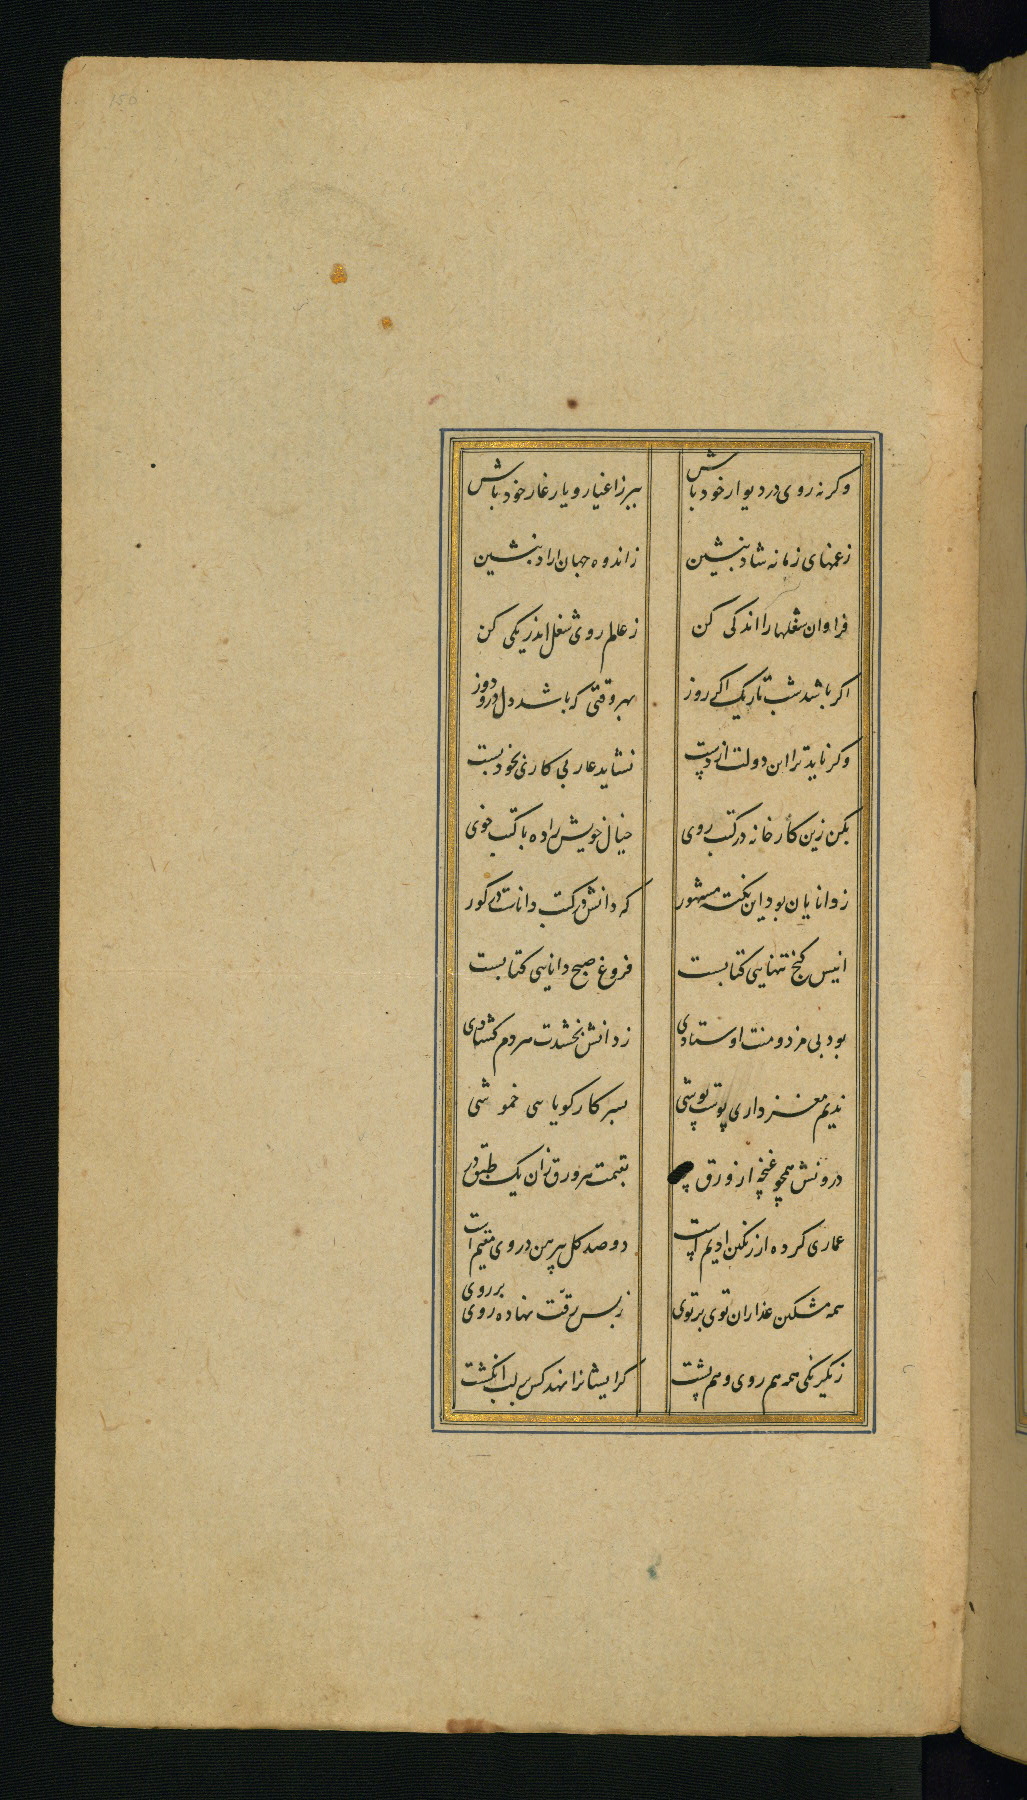 150
وکرنه روی در دیوار خود باش ببر ز اغیار و یار غار خود باش
زغمهای زمانه شاد بنشین ز اندوه جهان ازاد بنشین
فراوان شغلها را اندکی کن ز عالم روی شغل اندر یکی کن
اکر باشد شب تاریک اکر روز بهر وقتی که باشد دل درو دوز
وکر ناید ترا این دولت از دست نشاید عار بی کاری بخود بست
بکن زین کارخانه در کتب روی خیال خویش را ده با کتب خوی
ز دانایان بود این نکته مشهور که دانش در کتب داناست در کور
انیس کنج تنهایی کتابست فروغ صبح دانایی کتابست
بود بی مزد و منت اوستادی ز دانش بخشدت هر دم کشادی
ندیم مغز داری پوست پوشی بسر کار کویایی خموشی
درونش همچو غنچه از ورق پر بقیمت هر ورق زان یک طبق در
عماری کرده از رنکین ادیم است دو صد کل پیرهن در وی مقیم است
همه مشکین عذاران توی بر توی ز بس رقت نهاده روی بر روی
ز یکرنکی همه هم روی و هم پشت کر ایشانرا نهد کس بر لب انکشت